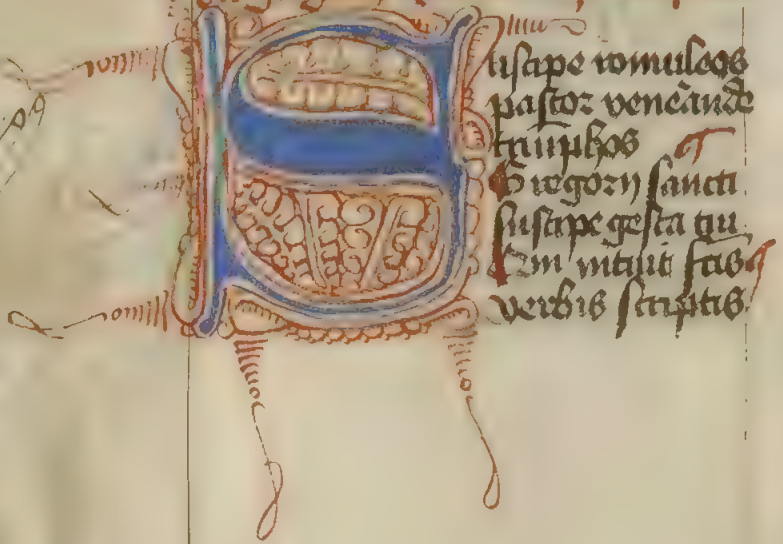 Suscipe romuleos
pastor venẽande
triũphos
Gregorij sancti
suscipe gesta tui
micuit
verbis scriptis